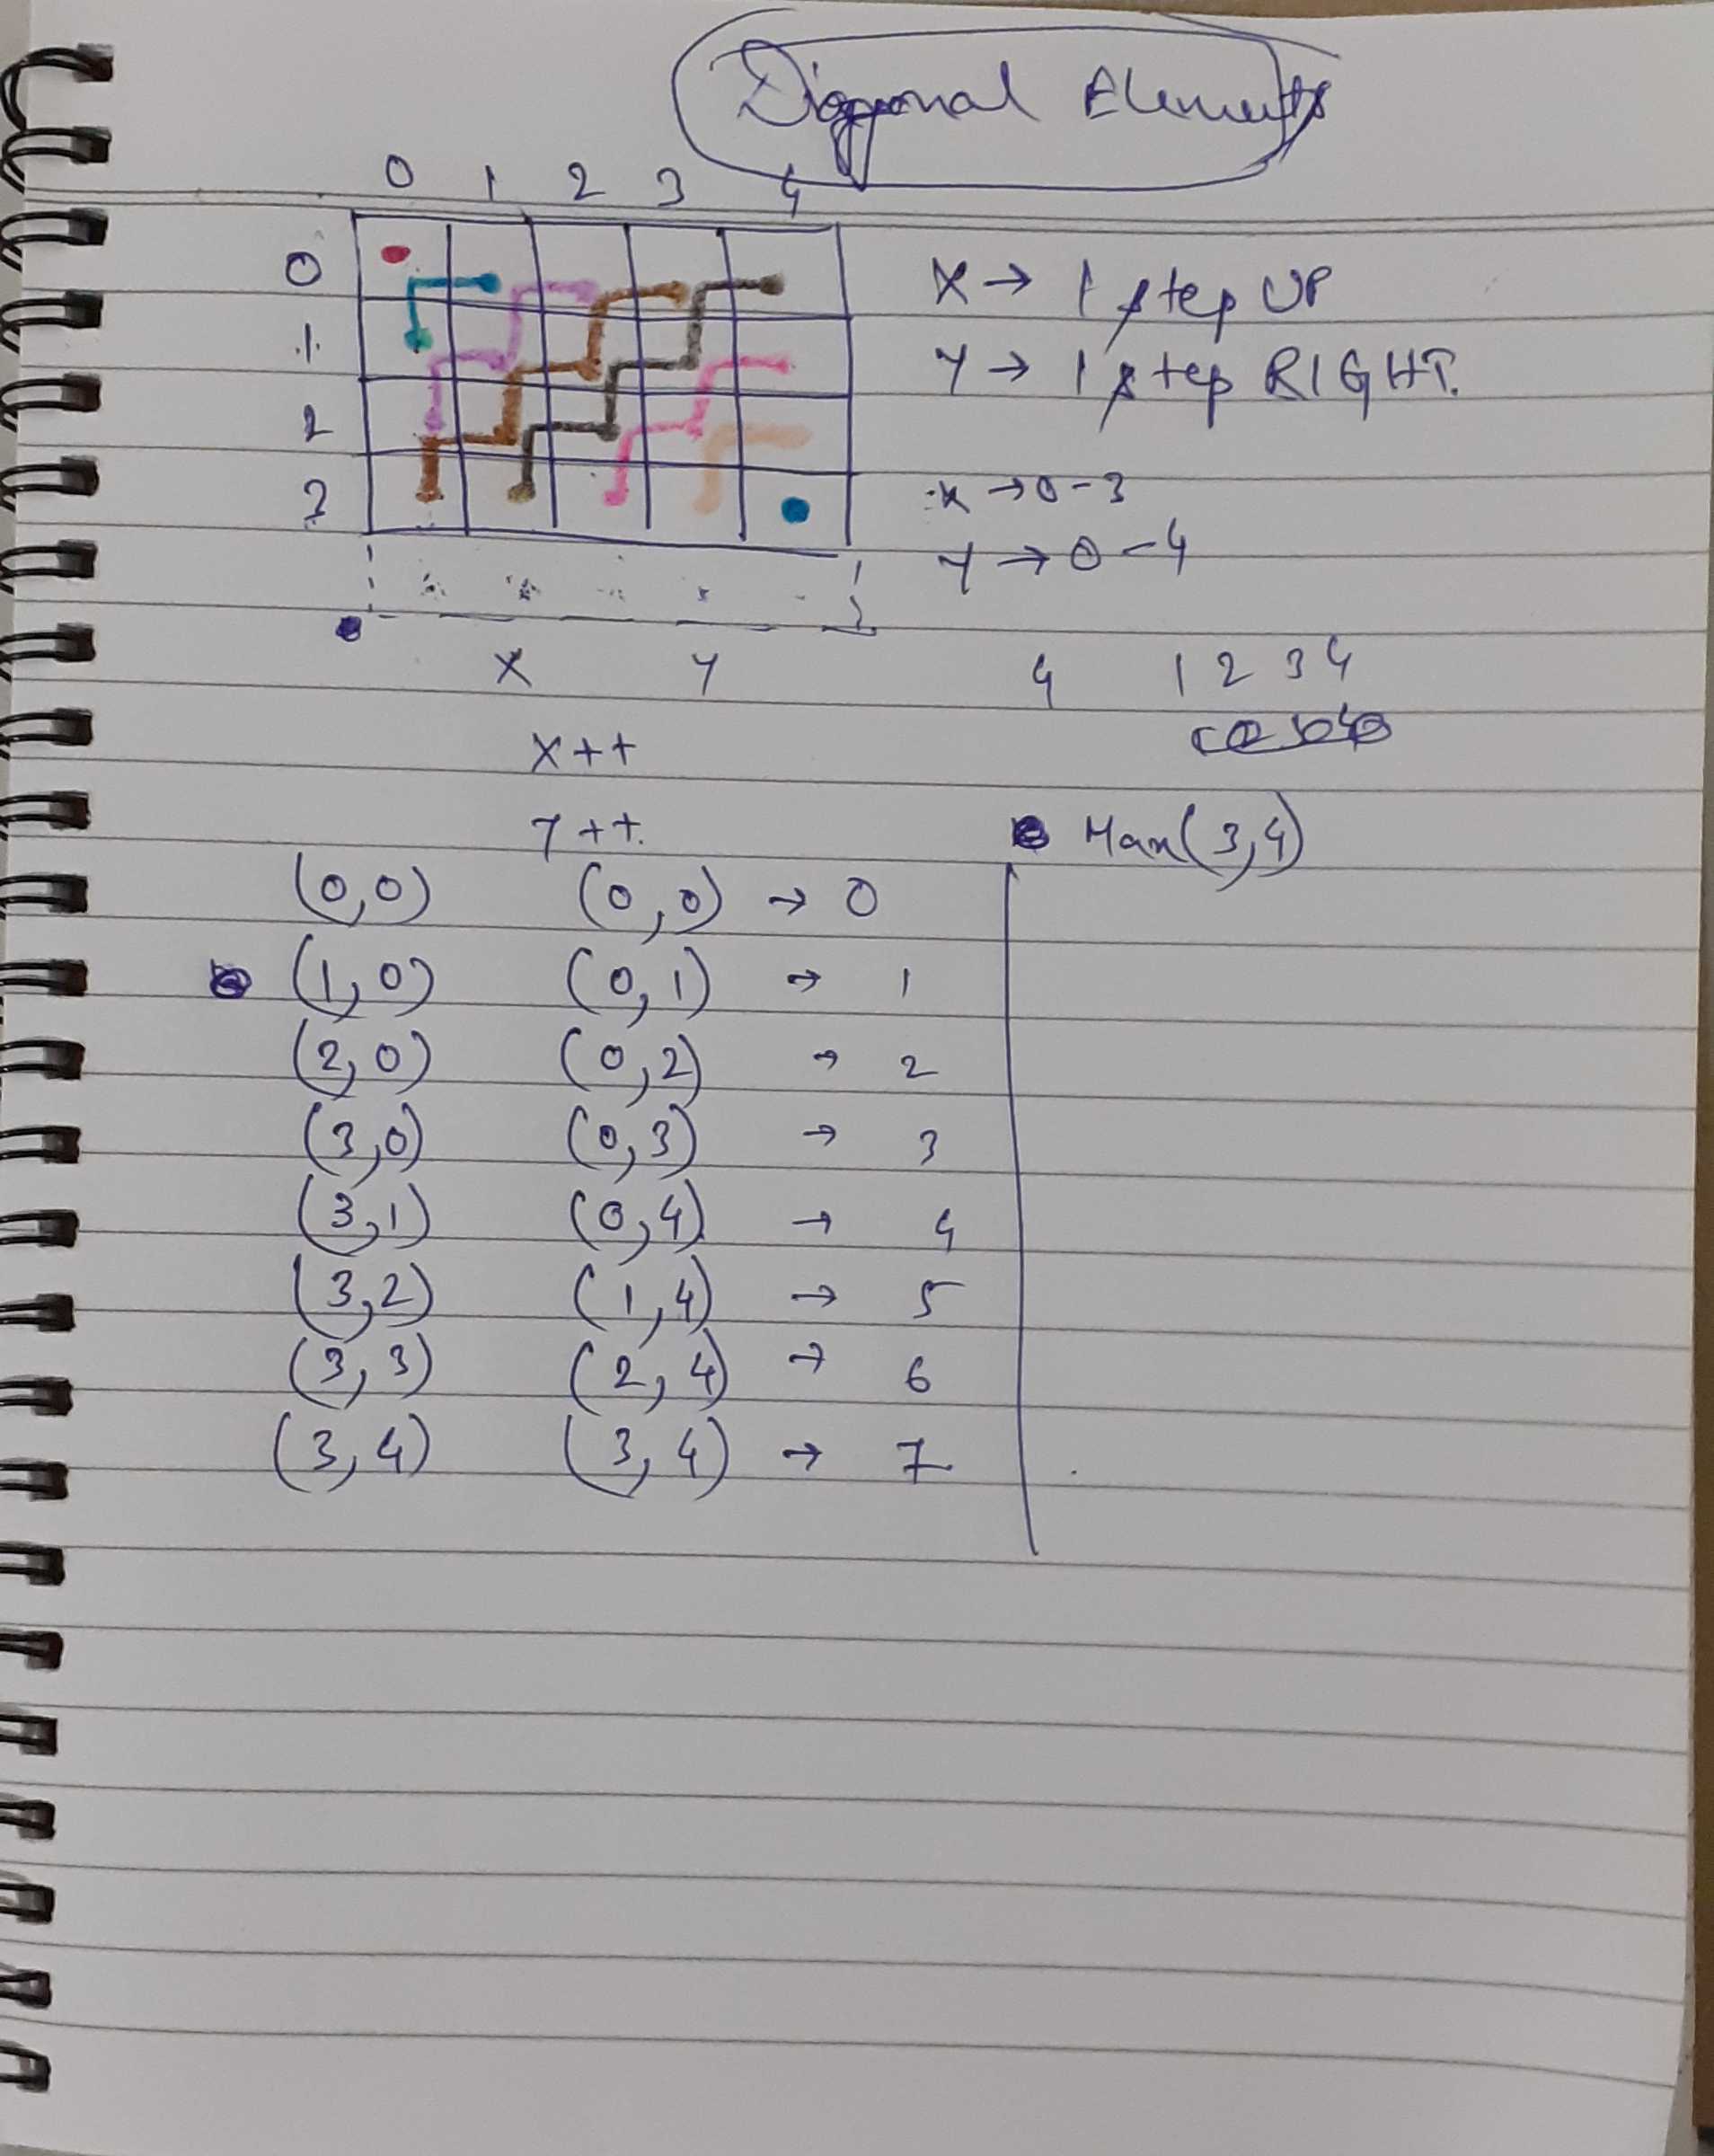 Diagonal Elements
0 1 2 3 4
0
X → 1 step UP
1
Y → 1 step RIGHT.
2
3
x → 0-3
Y → 0-4
X Y
4 1 2 3 4
X++
Y++.
Max(3,4)
(0,0) (0,0) → 0
(1,0) (0,1) → 1
(2,0) (0,2) → 2
(3,0) (0,3) → 3
(3,1) (0,4) → 4
(3,2) (1,4) → 5
(3,3) (2,4) → 6
(3,4) (3,4) → 7